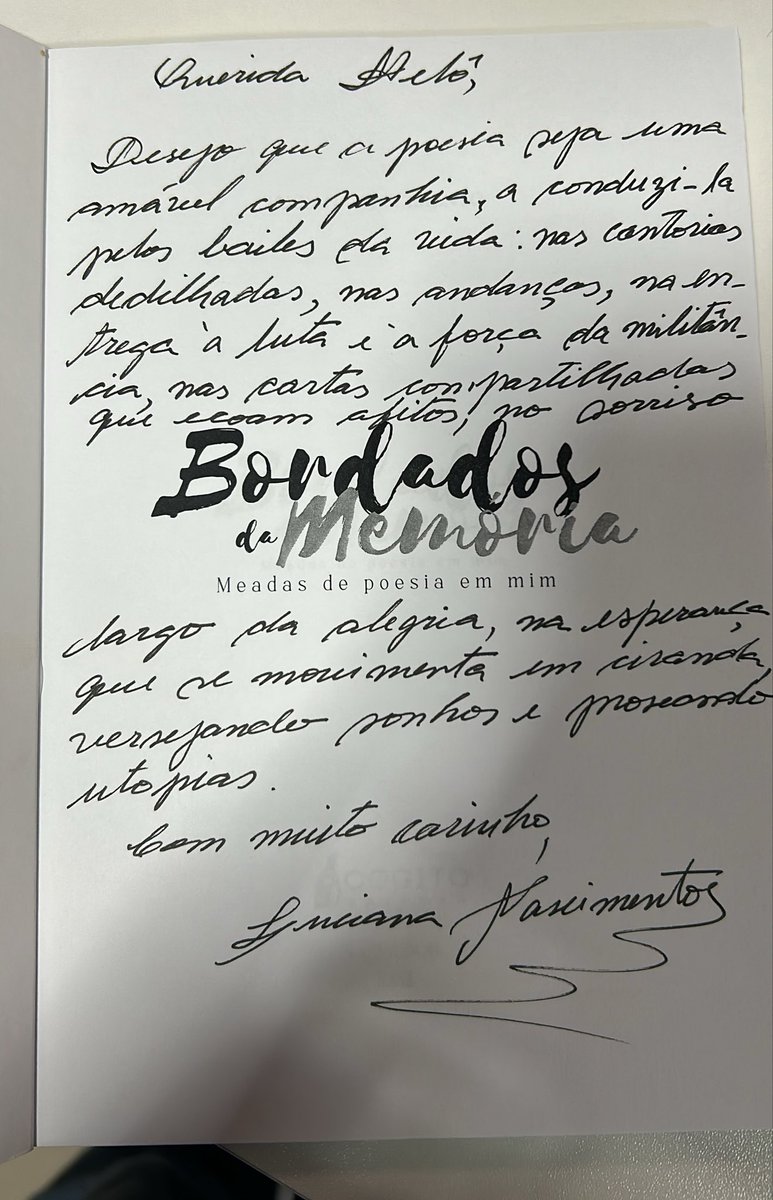 Querida Helô,
Desejo que a poesia seja uma
amável companhia, a conduzi-la
pelos bailes da vida: nas cantorias
dedilhadas, nas andanças, na en-
trega à luta e à força da militân-
cia, nas cartas compartilhadas
que ecoam afetos, no sorriso
Bordados
da Memória
Meadas de poesia em mim
largo da alegria, na esperança
que se movimenta em ciranda,
versejando sonhos e proseando
utopias.
Com muito carinho,
Luciana Nascimento